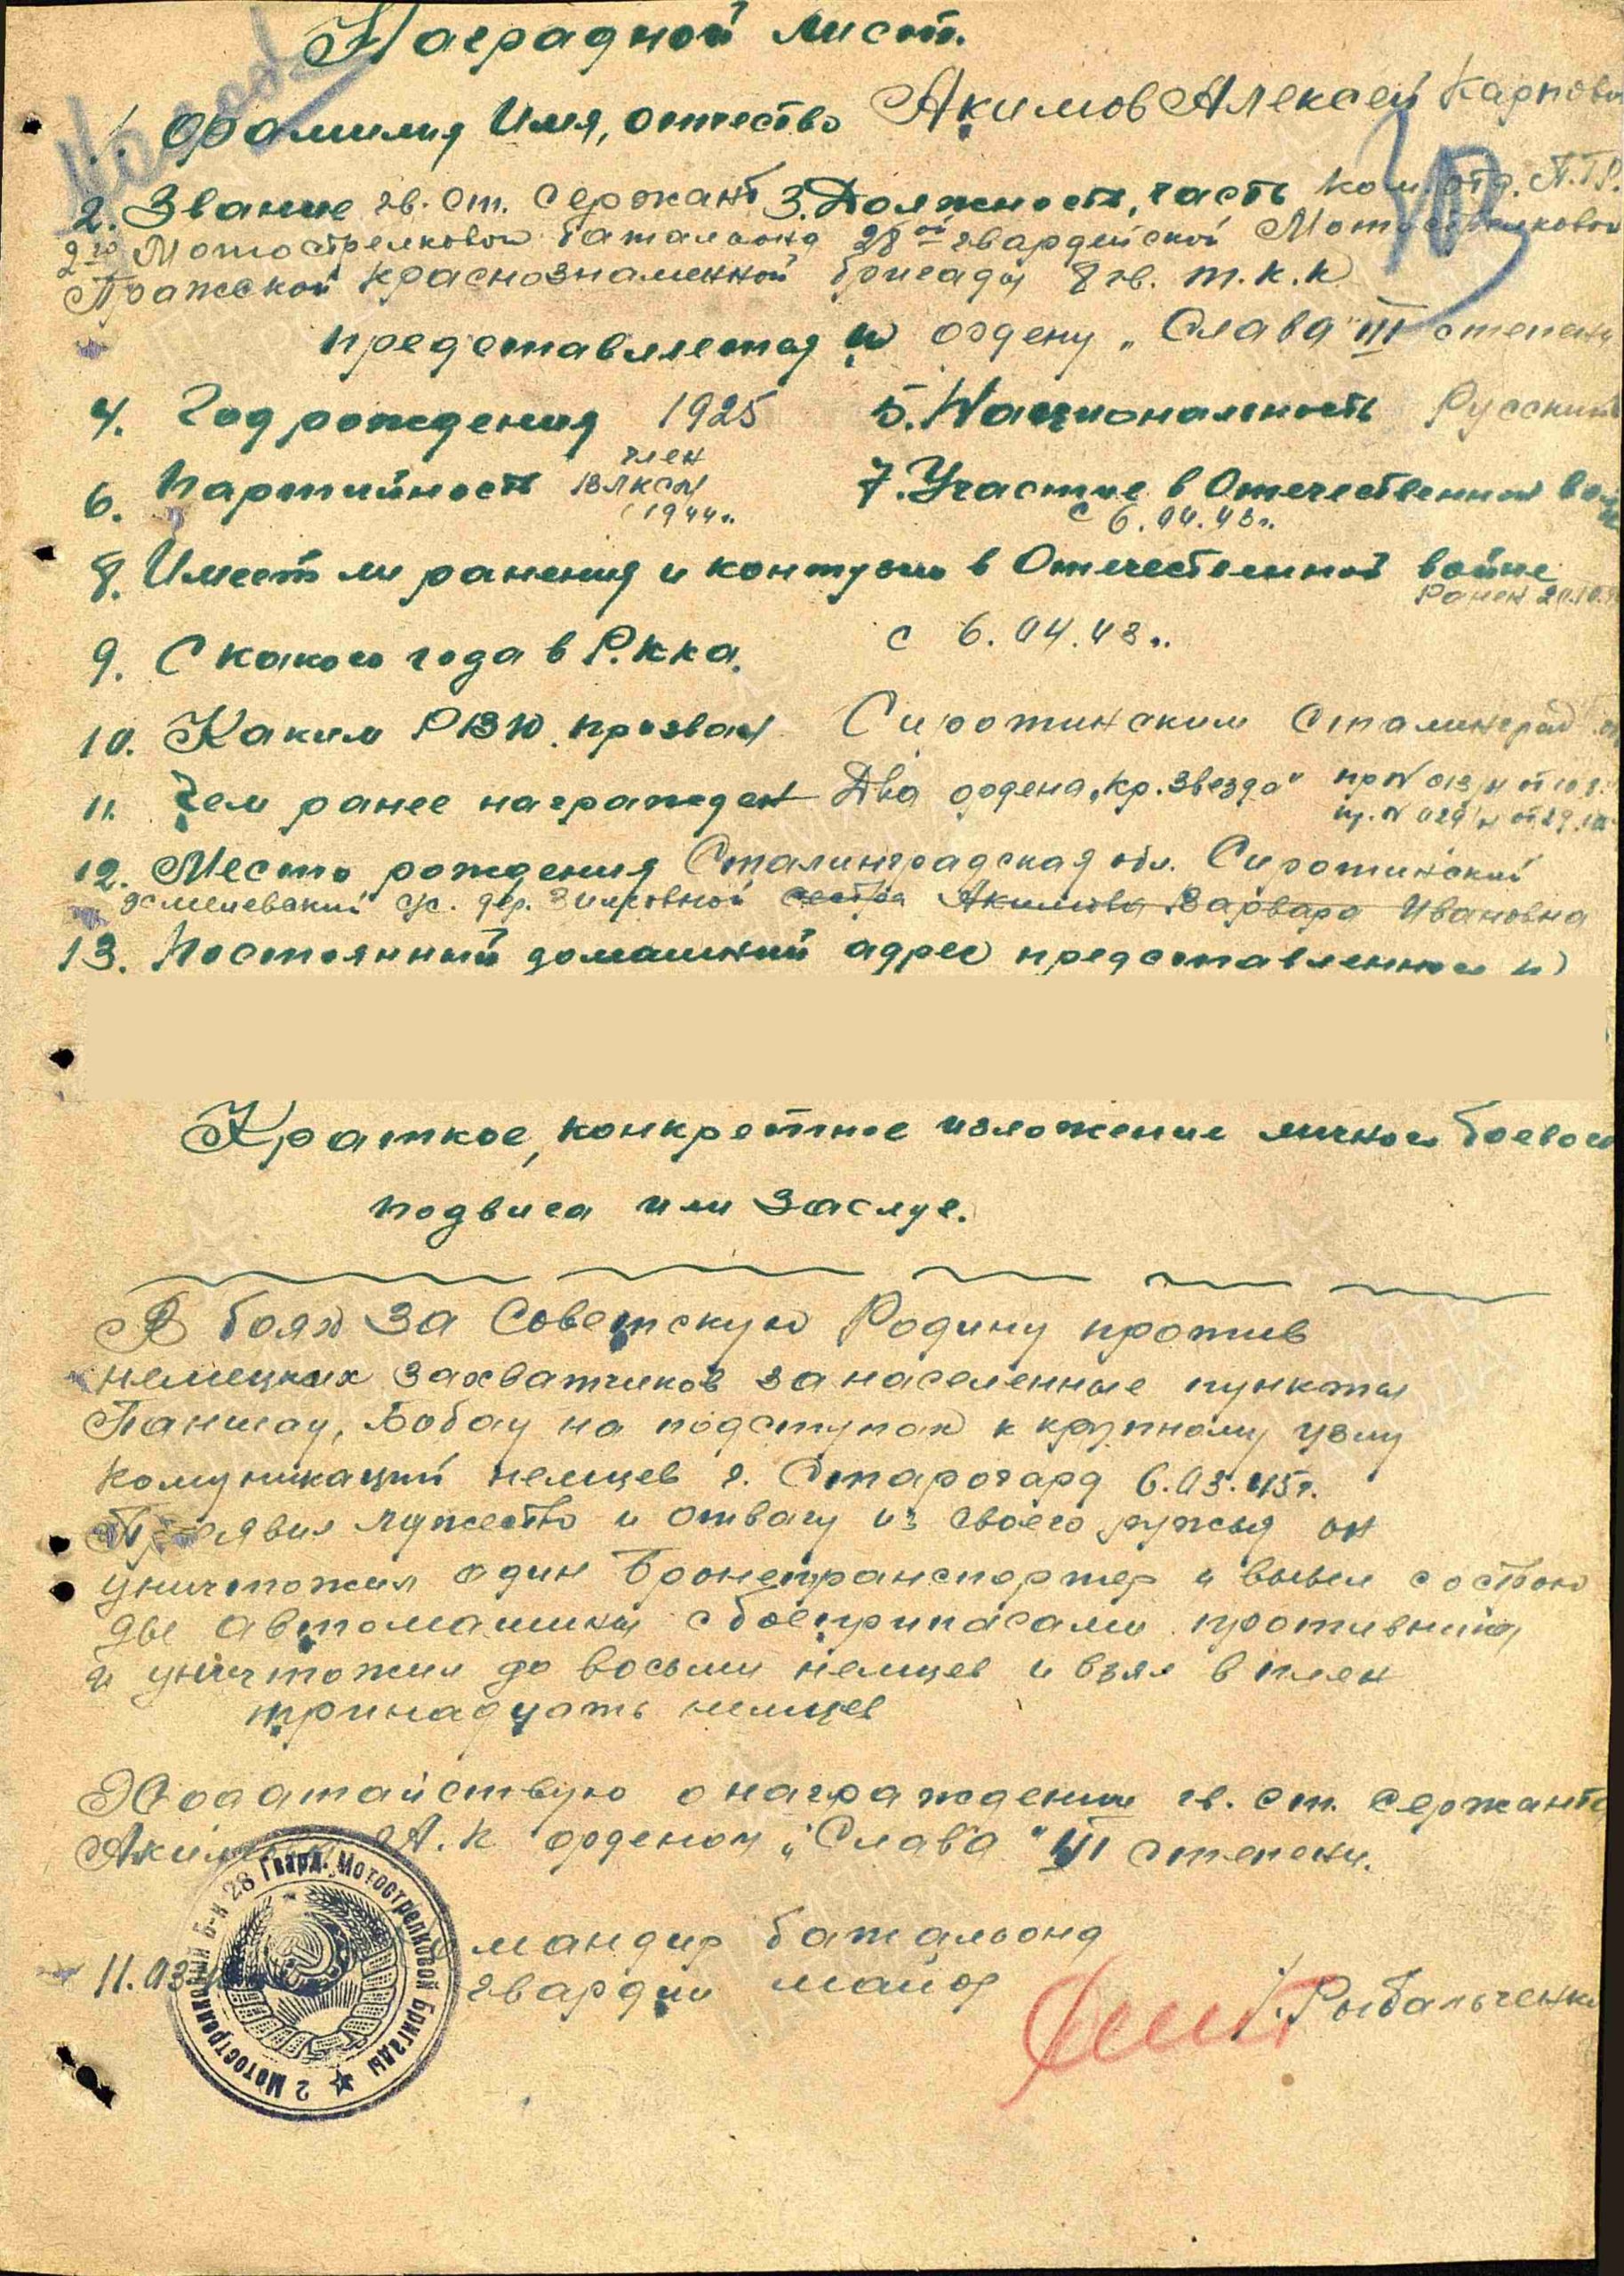 Наградной лист.
1. Фамилия Имя, отчество Акимов Алексей Карпови
2. Звание гв. ст. сержант 3. Должность, часть ком. отд. П.Т.Р.
2го Мотострелковой баталиона 28ой гвардейской Мотострелковой
Пражской Краснознаменной бригады 8 гв. т.к.к
представляется к ордену "Слава" III степени
4. Год рождения 1925 5. Национальность Русский
6. Партийность член ВЛКСМ 1944г. 7. Участие в Отечественной вой
с 6.04.43г.
8. Имеет ли ранения и контузии в Отечественной войне
Ранен 20.10.
9. С какого года в Р.кка. с 6.04.43г.
10. Каким РВК призван Сиротинским Сталинград
11. Чем ранее награжден Два ордена "Кр. Звезда" пр № 013/н от 10.8.
пр. № 029/н от 29.
12. Место рождения Сталинградская обл. Сиротинский
с/с. дер. сестра Акимова Варвара Ивановна
13. Постоянный домашний адрес представленного к
Краткое, конкретное изложение личного боевого
подвига или заслуг.
В боях за Советскую Родину против
немецких захватчиков за населенные пункты
Паншау, Бобау на подступах к крупному узлу
комуникаций немцев г. Старогард 6.03.45г.
Проявил мужество и отвагу из своего ружья он
уничтожил один бронетранспортер и вывел с строю
две автомашины с боеприпасами противника,
и уничтожил до восьми немцев и взял в плен
тринадцать немцев
Ходатайствую о награждении гв. ст. сержанта
Акимова А.К орденом "Слава" III степени.
командир батальона
11.03 гвардии майор Рыбальченко
2 Мотострелковый Б-н 28 Гвард. Мотострелковой Бригады